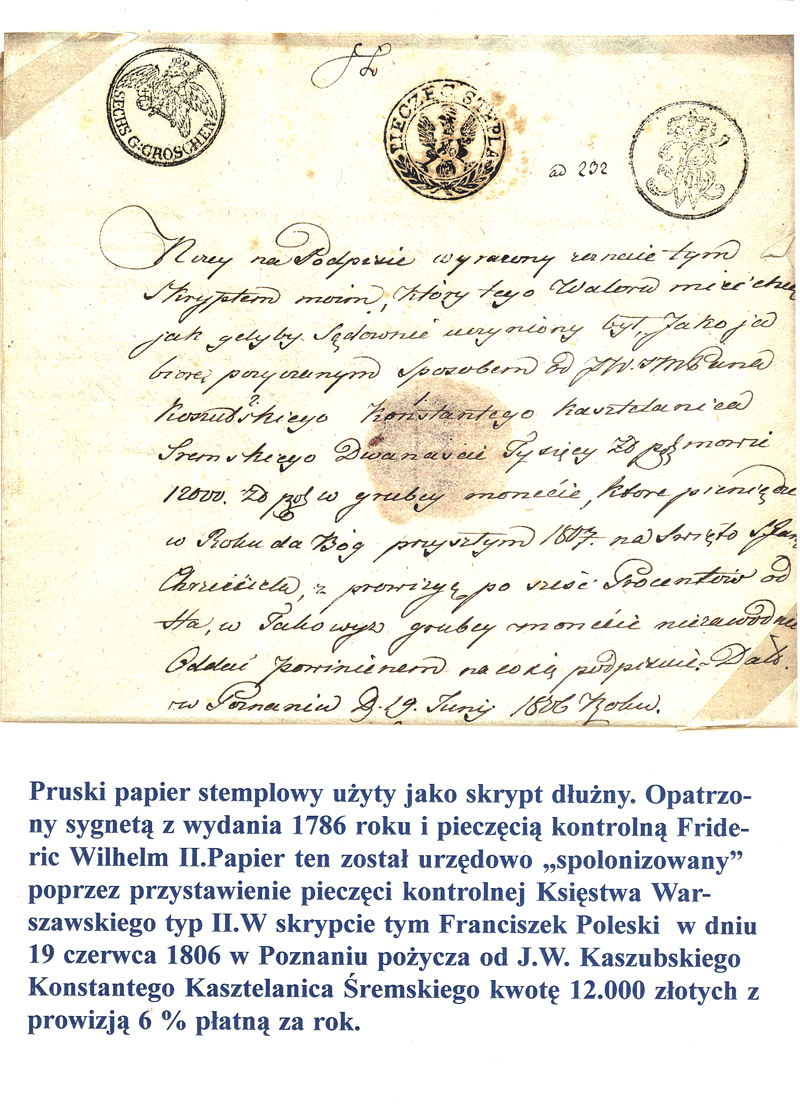 SECHS G: GROSCHEN
PIECZĘC STĘPLA
ad 232
Niżey na Podpisie wyrażony zeznaie tym
Skryptem moim, który tego Waloru mieć chcę
jak gdyby Sądownie uczyniony był, Jako ja
biorę pożyczanym sposobem od JW. JMPana
Koszubskiego Konstantego Kasztelanica
Sremskiego Dwanaście Tysięcy Zł pol mowię
12000. Zł pol w grubey monecie, które pieniądze
w Roku da Bóg przyszłym 1807. na Swięto S Jana
Chrzciciela, z prowizyą po sześć Procentów od
Sta, w Takowyż grubey monecie niezawodnie
Oddać powinienem na co się podpisuię. Dat.
w Poznaniu D. 19. Junij 1806 Roku.
Pruski papier stemplowy użyty jako skrypt dłużny. Opatrzo-
ny sygnetą z wydania 1786 roku i pieczęcią kontrolną Fride-
ric Wilhelm II.Papier ten został urzędowo „spolonizowany”
poprzez przystawienie pieczęci kontrolnej Księstwa War-
szawskiego typ II.W skrypcie tym Franciszek Poleski w dniu
19 czerwca 1806 w Poznaniu pożycza od J.W. Kaszubskiego
Konstantego Kasztelanica Śremskiego kwotę 12.000 złotych z
prowizją 6 % płatną za rok.